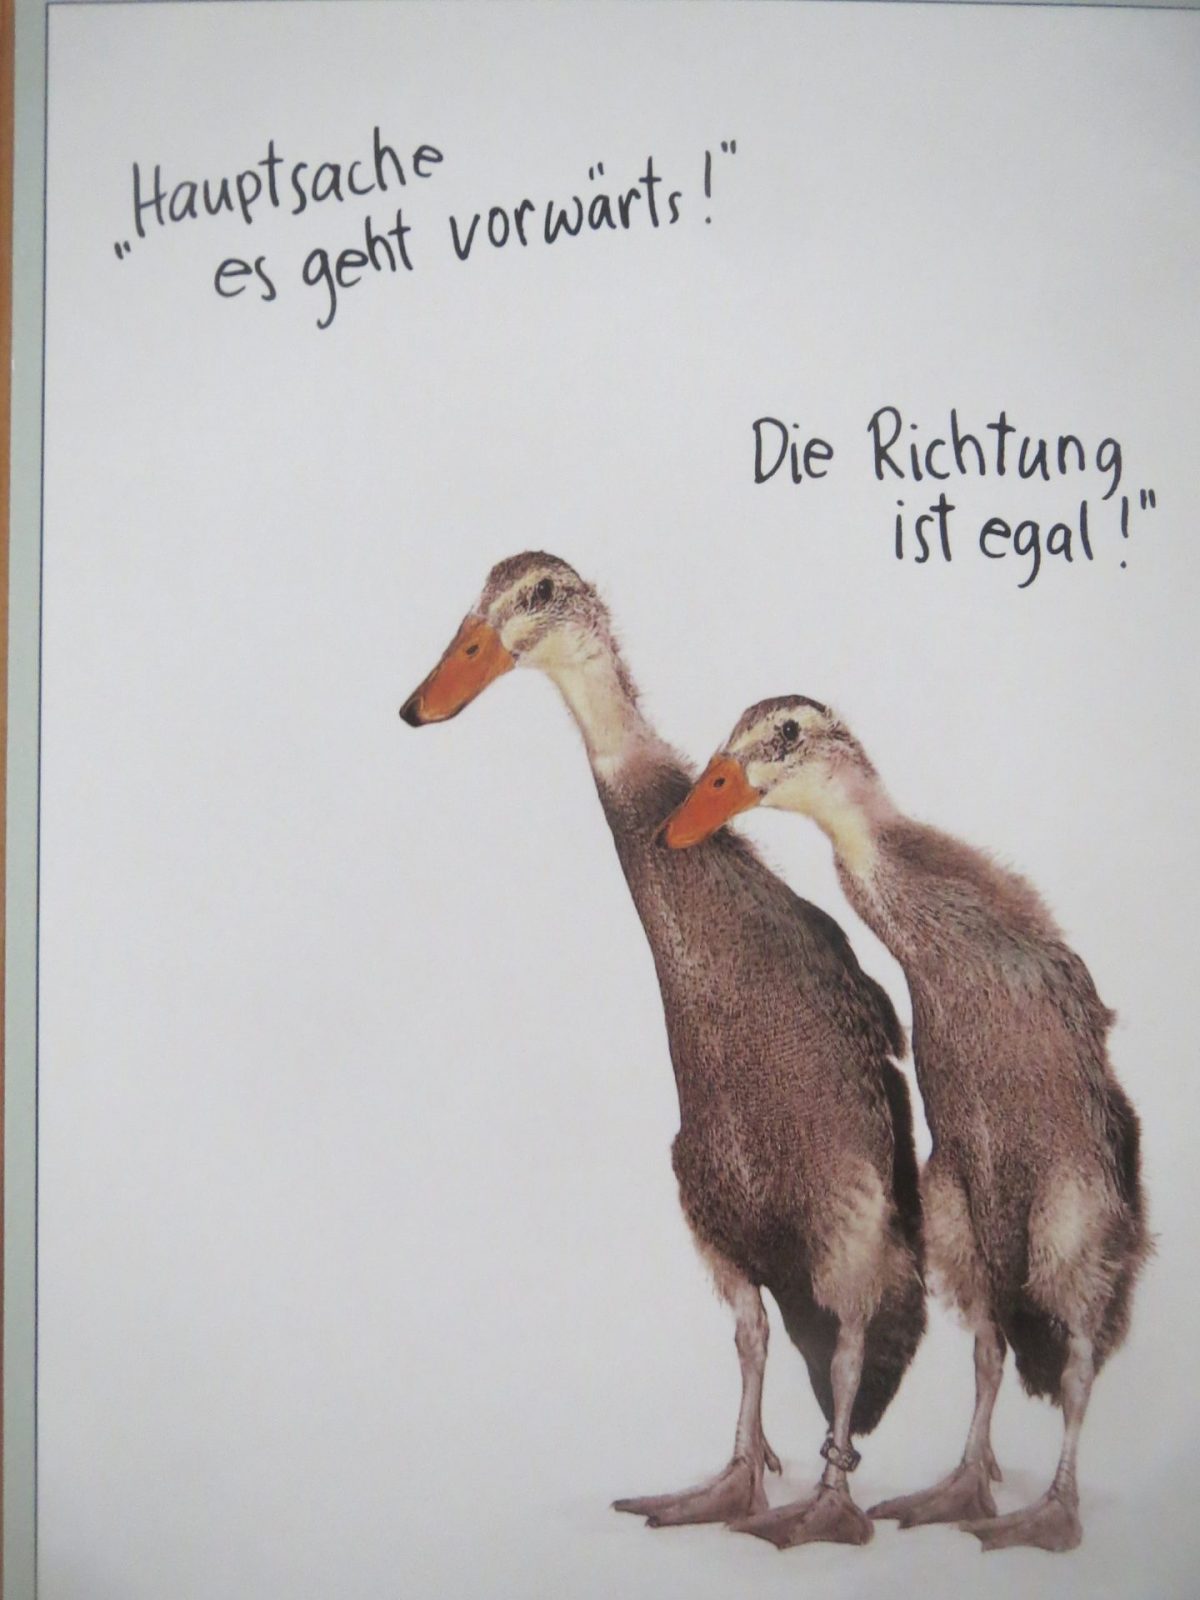 „Hauptsache
es geht vorwärts!"
Die Richtung
ist egal!"